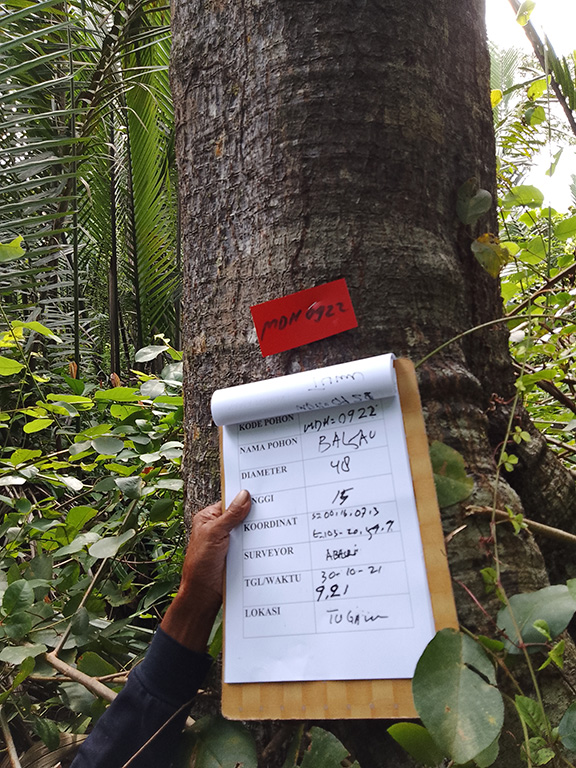 MDH 0922
KODE POHON MDH=0922
NAMA POHON BAKAU
DIAMETER 48
INGGI 15
KOORDINAT S200.16.07.3
SURVEYOR
TGL/WAKTU 30-10-21
9,21
LOKASI